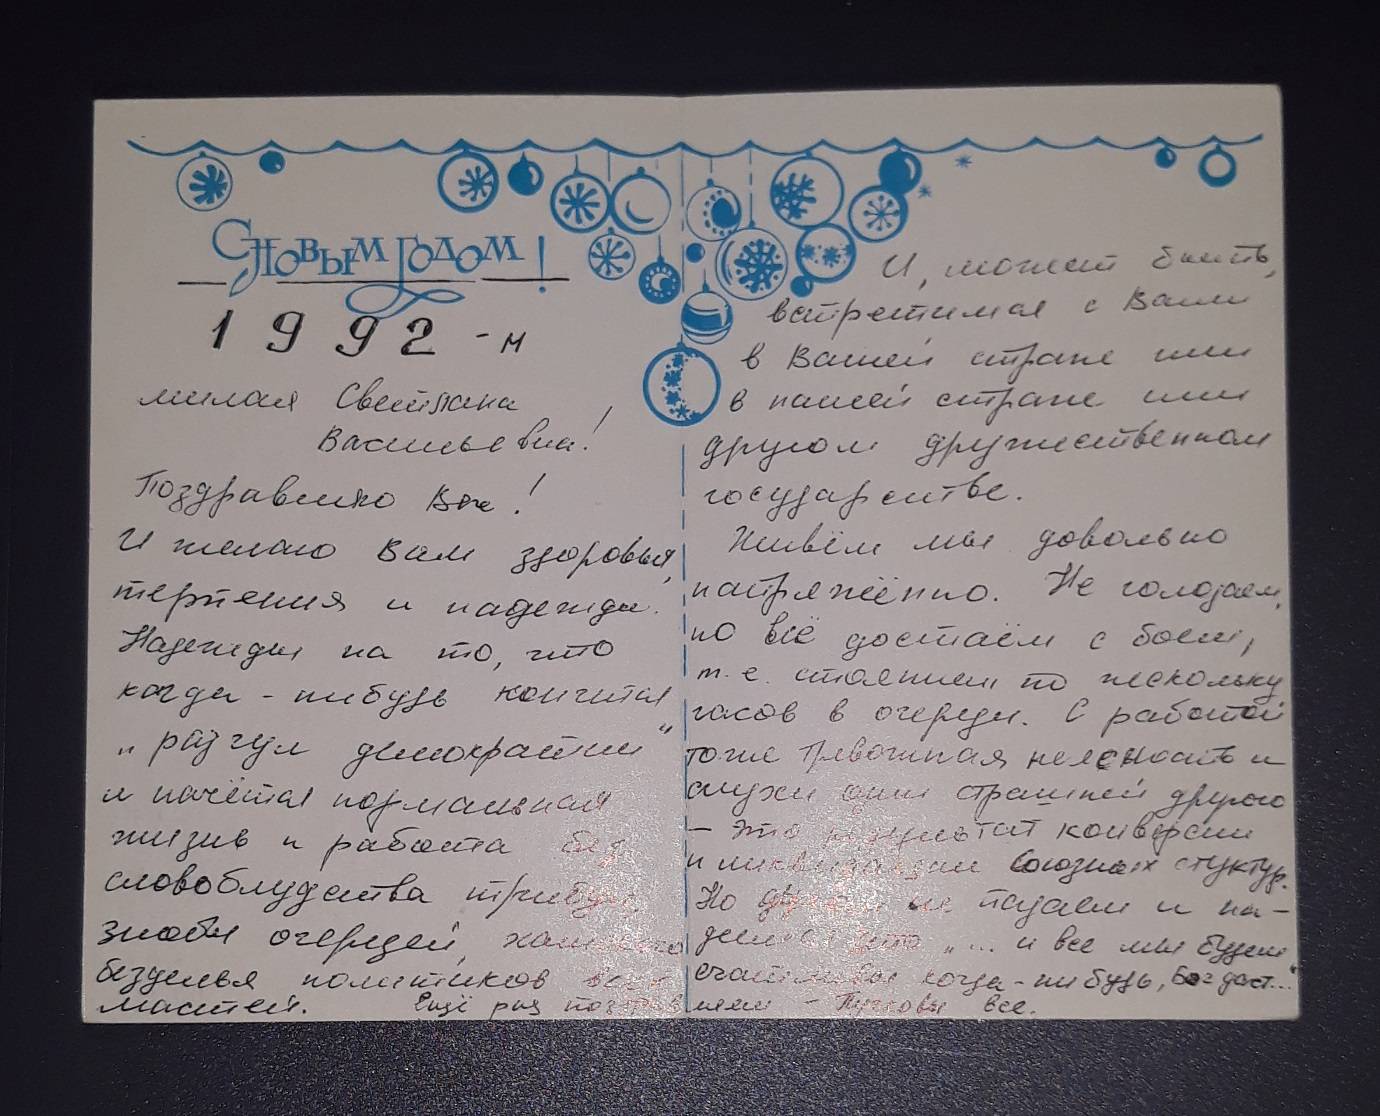 С Новым Годом!
1992-м
милая Светлана
Васильевна!
Поздравляю Вас!
И желаю Вам здоровья,
терпения и надежды.
Надежды на то, что
когда-нибудь кончится
"разгул демократии"
и начётся нормальная
жизнь и работа без
словоблудства трибун,
злобы очередей,
безделья политиков всех
мастей. Ещё раз поздрав
И, может быть,
встретимся с Вами
в Вашей стране или
в нашей стране или
другом дружественном
государстве.
Живём мы довольно
напряжённо. Не голодаем,
но всё достаём с боем,
т.е. стоянием по нескольку
часов в очереди. С работой
тоже тревожная неясность и
слухи один страшней другого
- это результат конверсии
и ликвидации союзных стуктур.
Но духом не падаем и на-
деемся что "... и все мы будем
счастливы когда-нибудь, Бог даст..."
ляем - все.